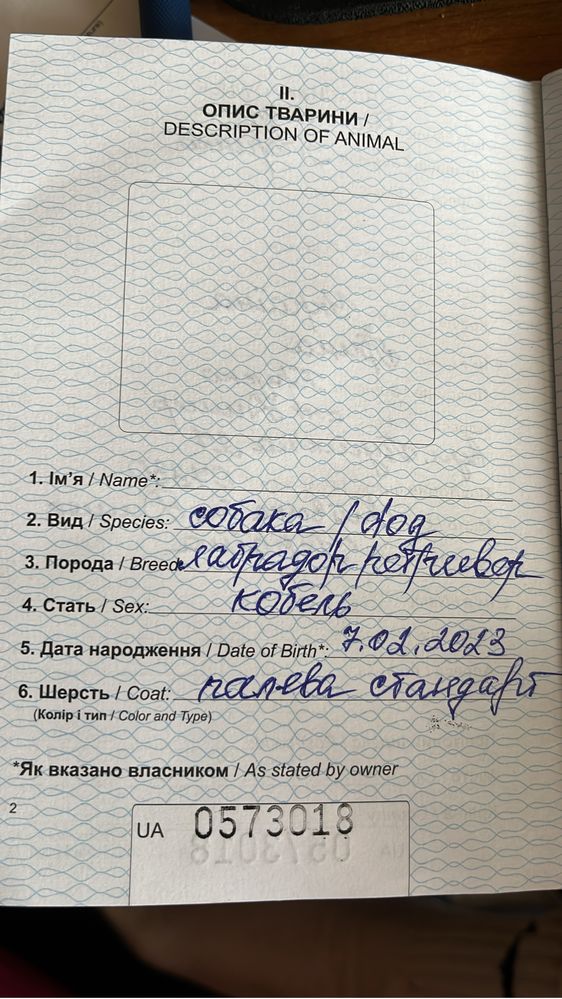 II.
ОПИС ТВАРИНИ /
DESCRIPTION OF ANIMAL
1. Ім'я / Name*:
2. Вид / Species: собака / dog
3. Порода / Breed: лабрадор ретривер
4. Стать / Sex: кобель
5. Дата народження / Date of Birth*: 7.02.2023
6. Шерсть / Coat: палева стандарт
(Колір і тип / Color and Type)
*Як вказано власником / As stated by owner
2
UA 0573018